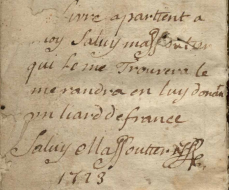 livre apartient a
moy Saluy massoutier
qui le me Trouvera le
me randra en luy donan
un liard de france
Saluy Massoutier
1723